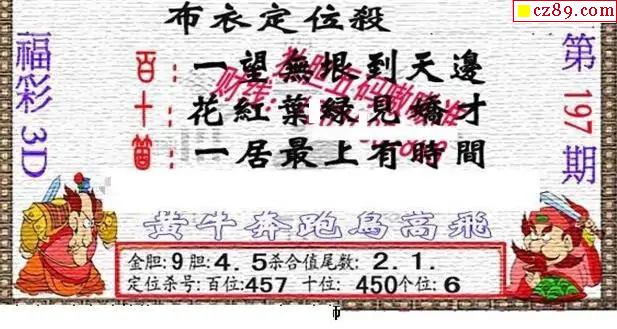 cz89.com
布衣定位殺
福彩3D
第197期
百：一望無垠到天邊
十：花紅葉緑見嬌才
個：一居最上有時間
黄牛奔跑鳥高飛
金胆:9胆:4.5杀合值尾数:2.1.
定位杀号:百位:457 十位:450个位:6